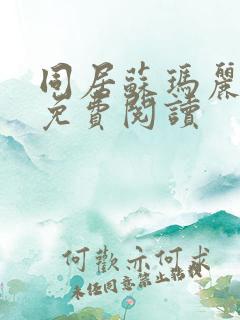 同居蘇瑪麗
免費閱讀
何歡亦何求
未經同意禁止轉載